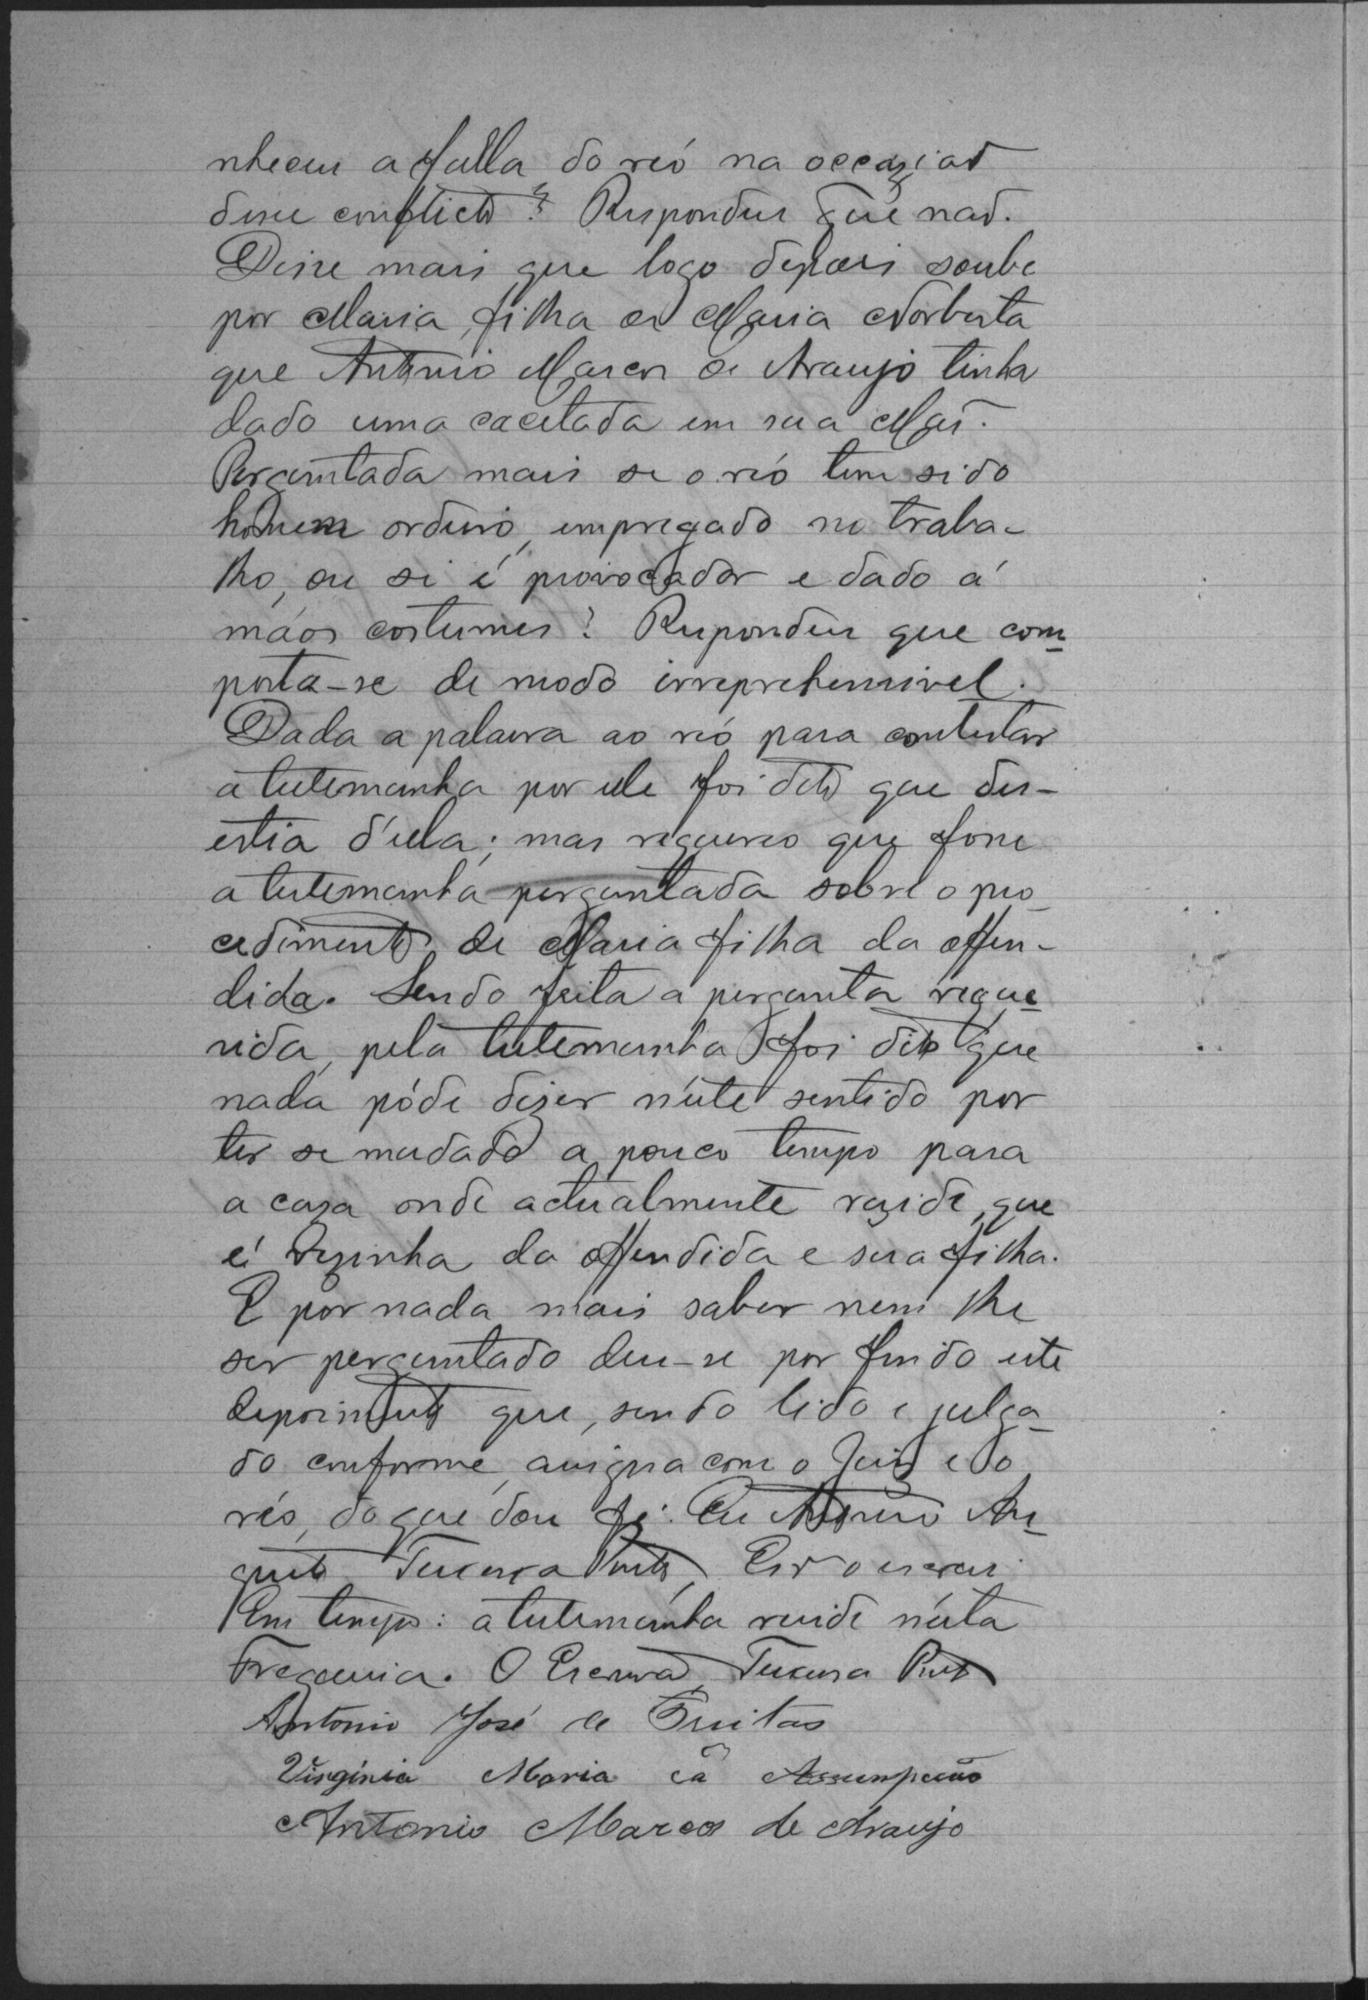 nheceu a falla do reó na occazião
desse conflicto? Respondeu que não.
Disse mais que logo depois soube
por Maria, filha de Maria Norberta
que Antonio Marcos de Araujo tinha
dado uma cacetada em sua Mãi.
Perguntada mais se o reó tem sido
homem ordeiro, empregado no traba-
lho, ou si é provocador e dado á
máos costumes? Respondeu que com
porta-se de modo irreprehensivel.
Dada a palavra ao reó para contestar
a testemunha por elle foi dito que des-
estia d'ella; mas requereo que fosse
a testemunha perguntada sobre o pro
cedimento de Maria filha da offen-
dida. Sendo feita a pergunta reque
rida, pela testemunha foi dito que
nada póde dizer n'este sentido por
ter se mudado a pouco tempo para
a caza onde actualmente rezide, que
é vezinha da offendida e sua filha.
E por nada mais saber nem lhe
ser perguntado deu-se por findo este
depoimento que, sendo lido e julga
do conforme, assigna com o Juiz e o
réo, do que dou fé. Eu Antonio Au
gusto Teixeira Pinto, Esr o escrevi
Em tempo: a testemunha reside n'esta
Freguesia. O Escrivão Teixeira Pinto
Antonio José de Freitas
Virginia Maria da Assumpcão
Antonio Marcos de Araujo